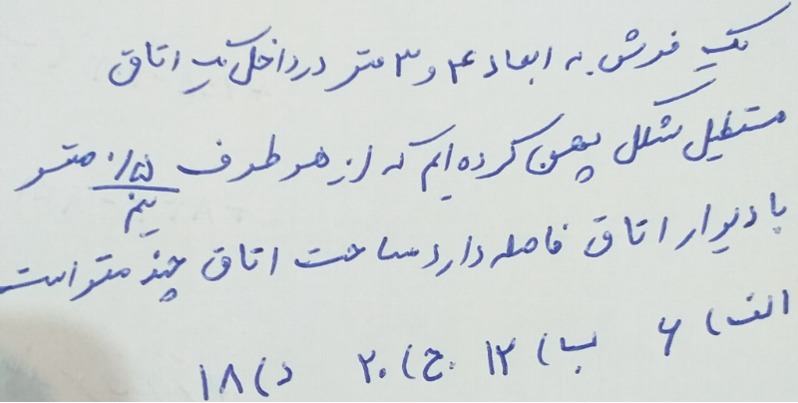 یک فرش به ابعاد ۴ و ۳ متر در داخل یک اتاق
مستطیل شکل پهن کرده ایم که از هر طرف ۰/۵ متر
نیم
با دیوار اتاق فاصله دارد مساحت اتاق چند متر است
الف) ۶ ب) ۱۲ ج) ۲۰ د) ۱۸